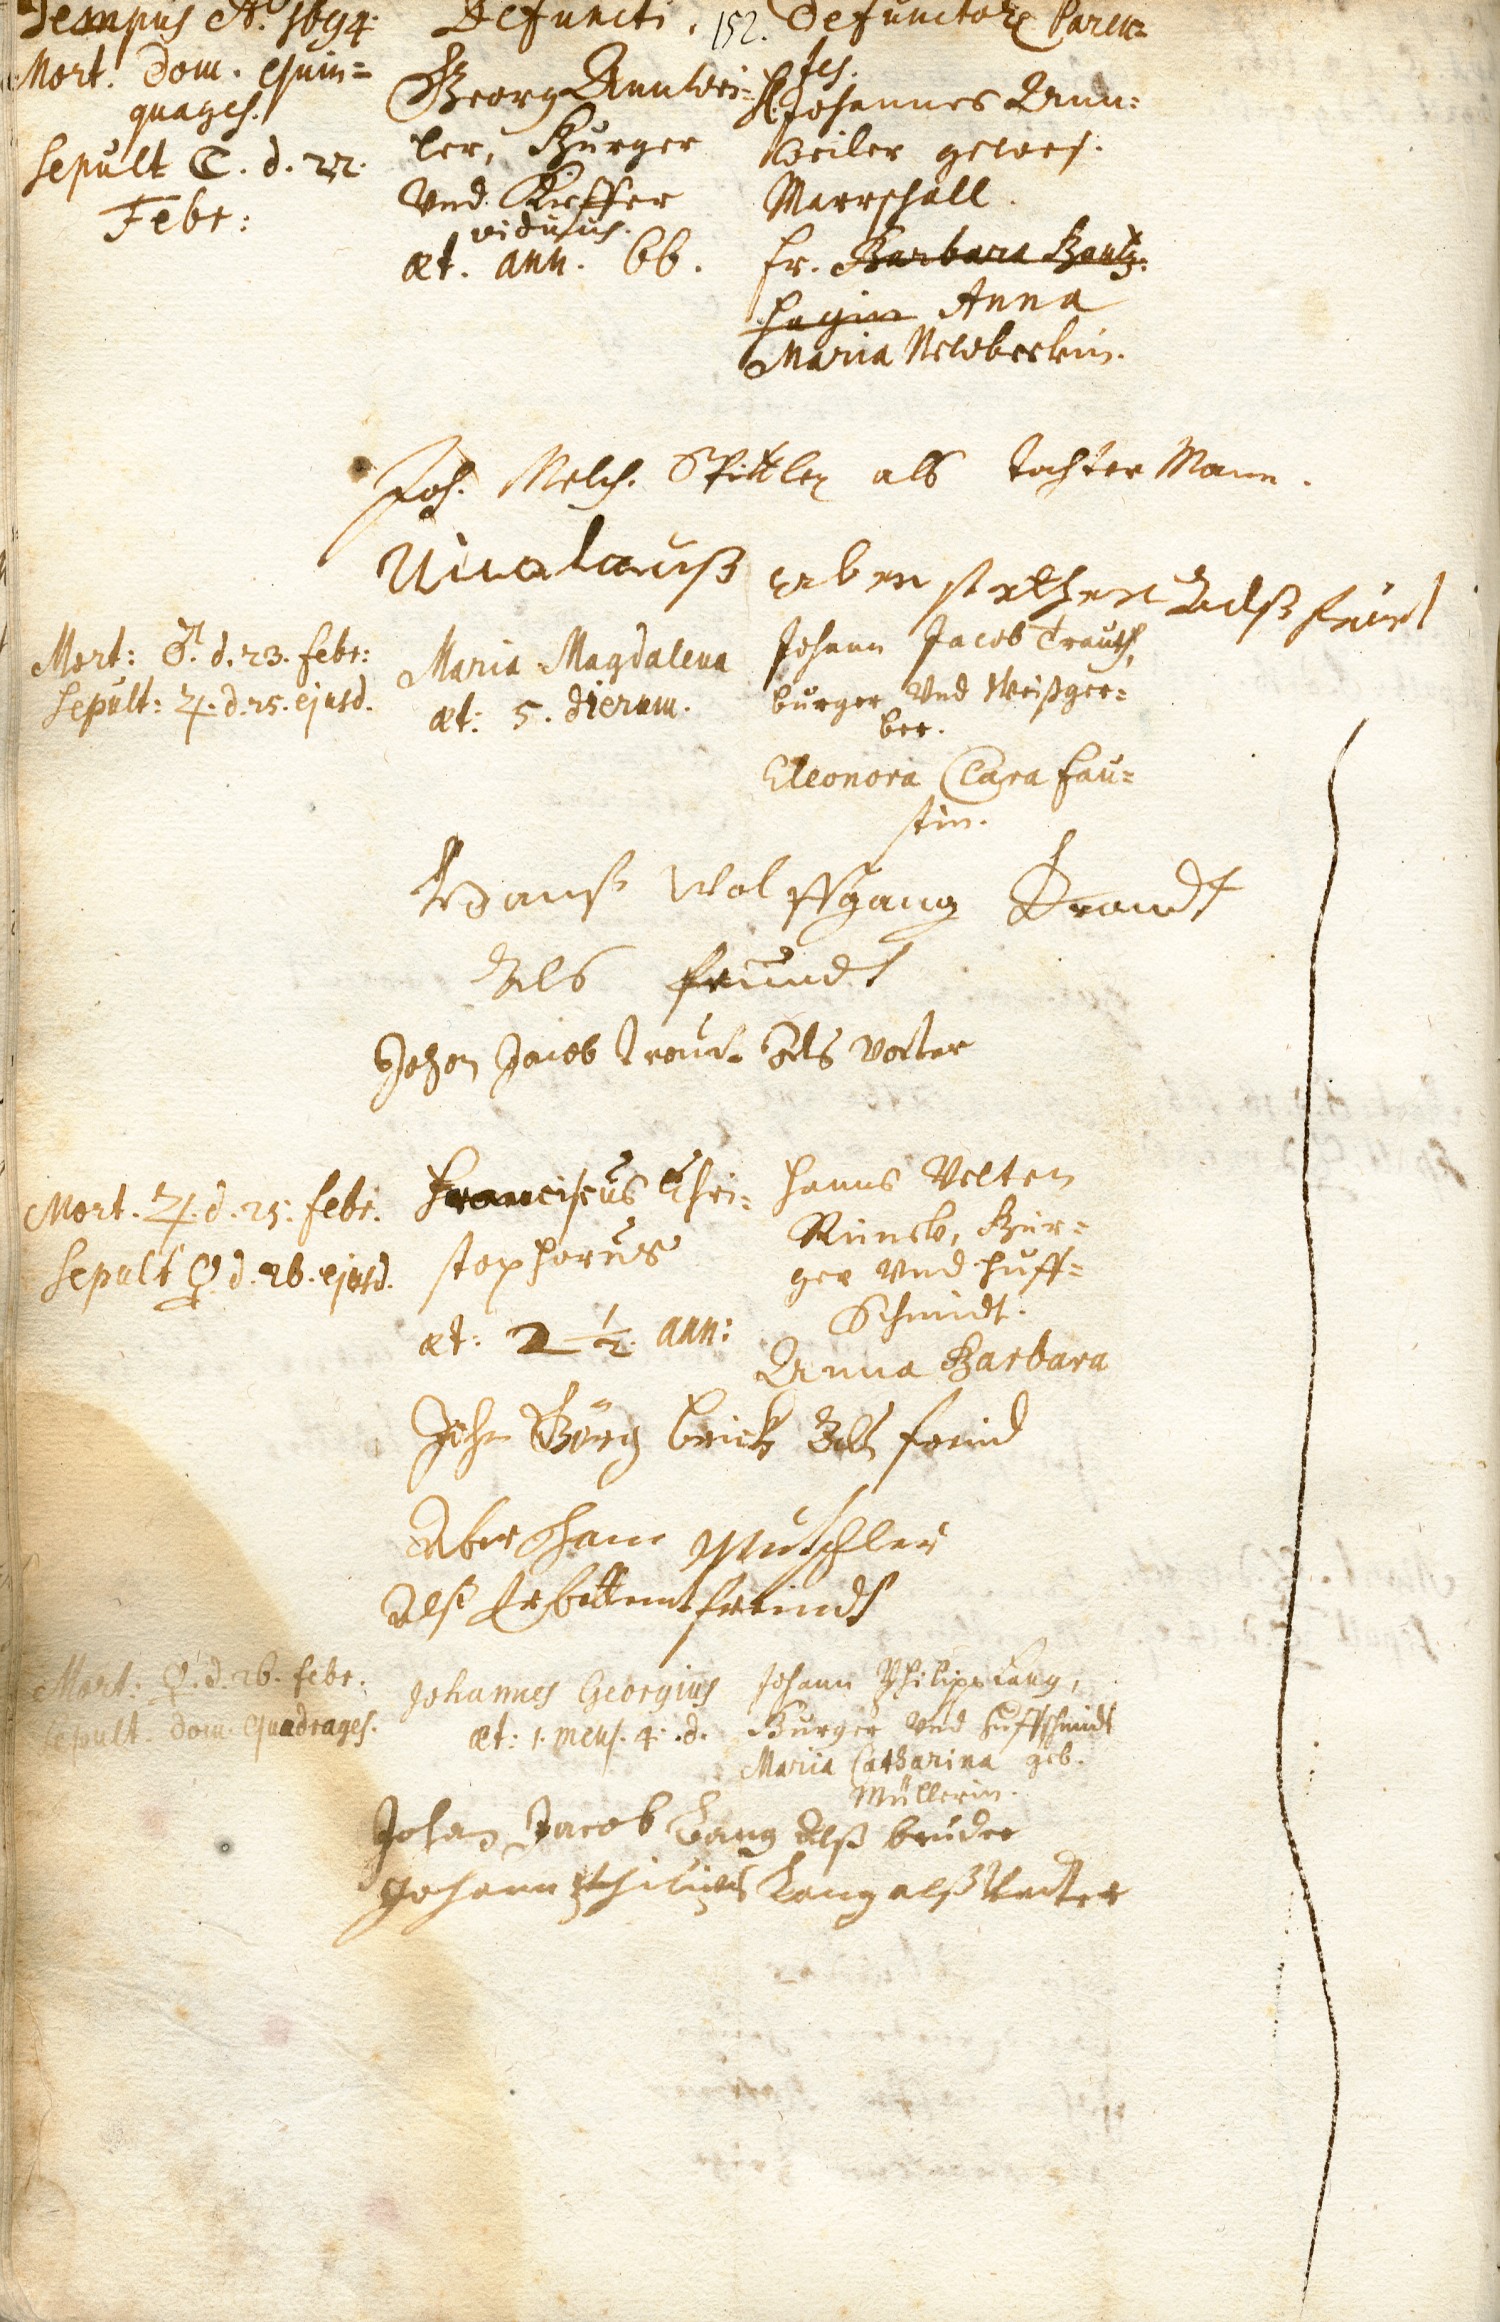 Tempus A. 1694.
Defuncti.
152.
Defunctorum Paren=
tes.
Mort. Dom. Quin=
quages.
Sepult ☾. d. 22.
Febr:
Georg Annwei=
ler, Burger
Vnd Kieffer
viduus.
æt. ann. 66.
H. Johannes Ann=
weiler gewes.
Marrschall.
Fr. Barbara Bentz=
hagin Anna
Maria
Joh. Melch. Spittler als tochter Mann.
Nicolauß
Mort: ♂. d. 23. febr:
Sepult: ♃. d. 25. ejusd.
Maria Magdalena
æt: 5. dierum.
Johann Jacob Trauth,
burger Vnd Weißger=
ber.
Eleonora Clara Fau=
stin.
Hanß Wolffgang Brandt
Als freundt
Johan Jacob Traut Als Vatter
Mort. ♃. d. 25. febr.
Sepult ♀ d. 26. ejusd.
Franciscus Chri=
stophorus
æt: 2 1/2. ann:
Hanns Velten
Rünck, Bur=
ger Vnd Huff=
Schmidt.
Anna Barbara
Joha Görg Als freind
Aberham Mutschler
Alß Erbettene freindt
Mort: ♀. d. 26. febr.
Sepult. Dom. Quadrages.
Johannes Georgius
æt: 1. mens. 4. d.
Johann Philipp Lang,
Burger Vnd Huffschmidt
Maria Catharina geb.
Müllerin.
Johan Jacob Lang Alß bruder
Johann Philips Lang alß Vatter